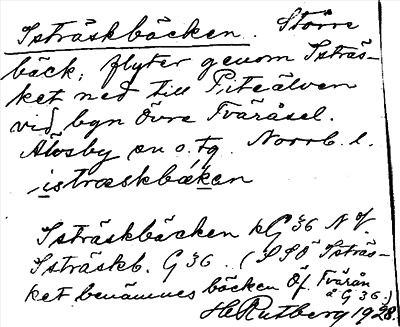 Isträskbäcken. Större
bäck, flyter genom Isträs-
ket ned till Piteälven
vid byn Övre Tväråsel.
Älvsby sn o. tg. Norrb. l.
istræskbækan
Isträskbäcken kG 36 N of.
Isträskb. G 36. (SSÖ Isträs-
ket benämnes bäcken Öf. Tvärån
å G 36.)
H Rutberg 1928.